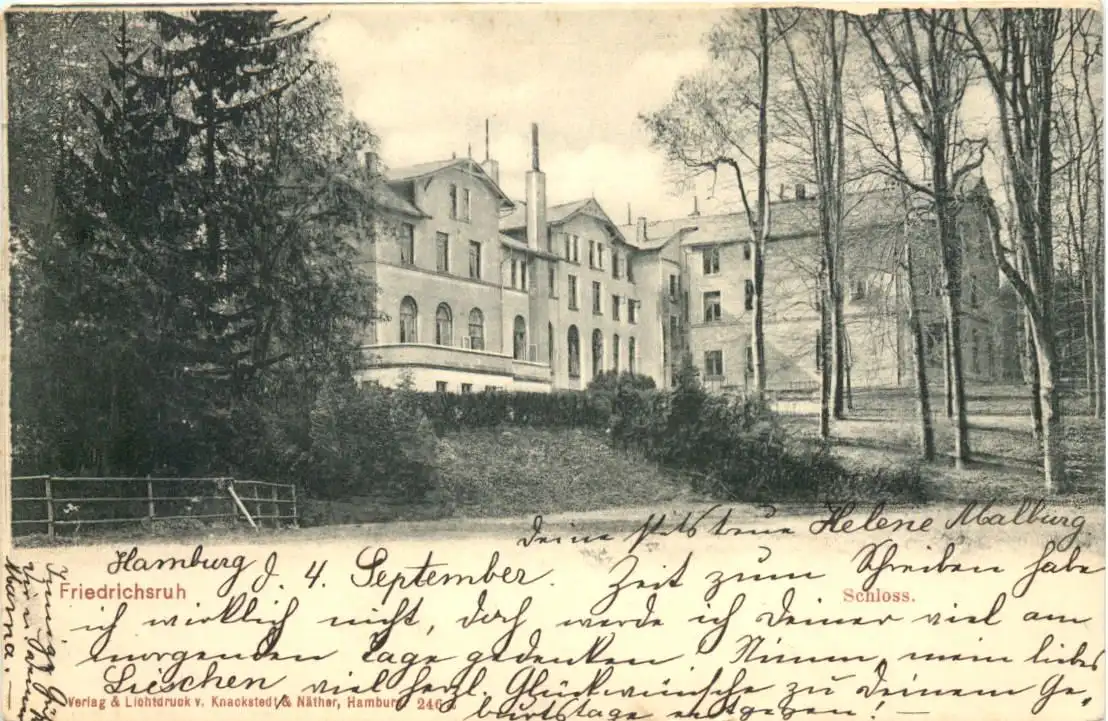 deine stets treue Helene Malburg
Hamburg d. 4. September. Zeit zum Schreiben habe
Friedrichsruh
Schloss.
ich wirklich nicht, doch werde ich deiner viel am
morgenden Tage gedenken. Nimm, mein liebes
Lieschen, viel herzl. Glückwünsche zu Deinem Ge-
burtstage entgegen! —
Verlag & Lichtdruck v. Knackstedt & Näther, Hamburg 246
Innige
von
Mama. —